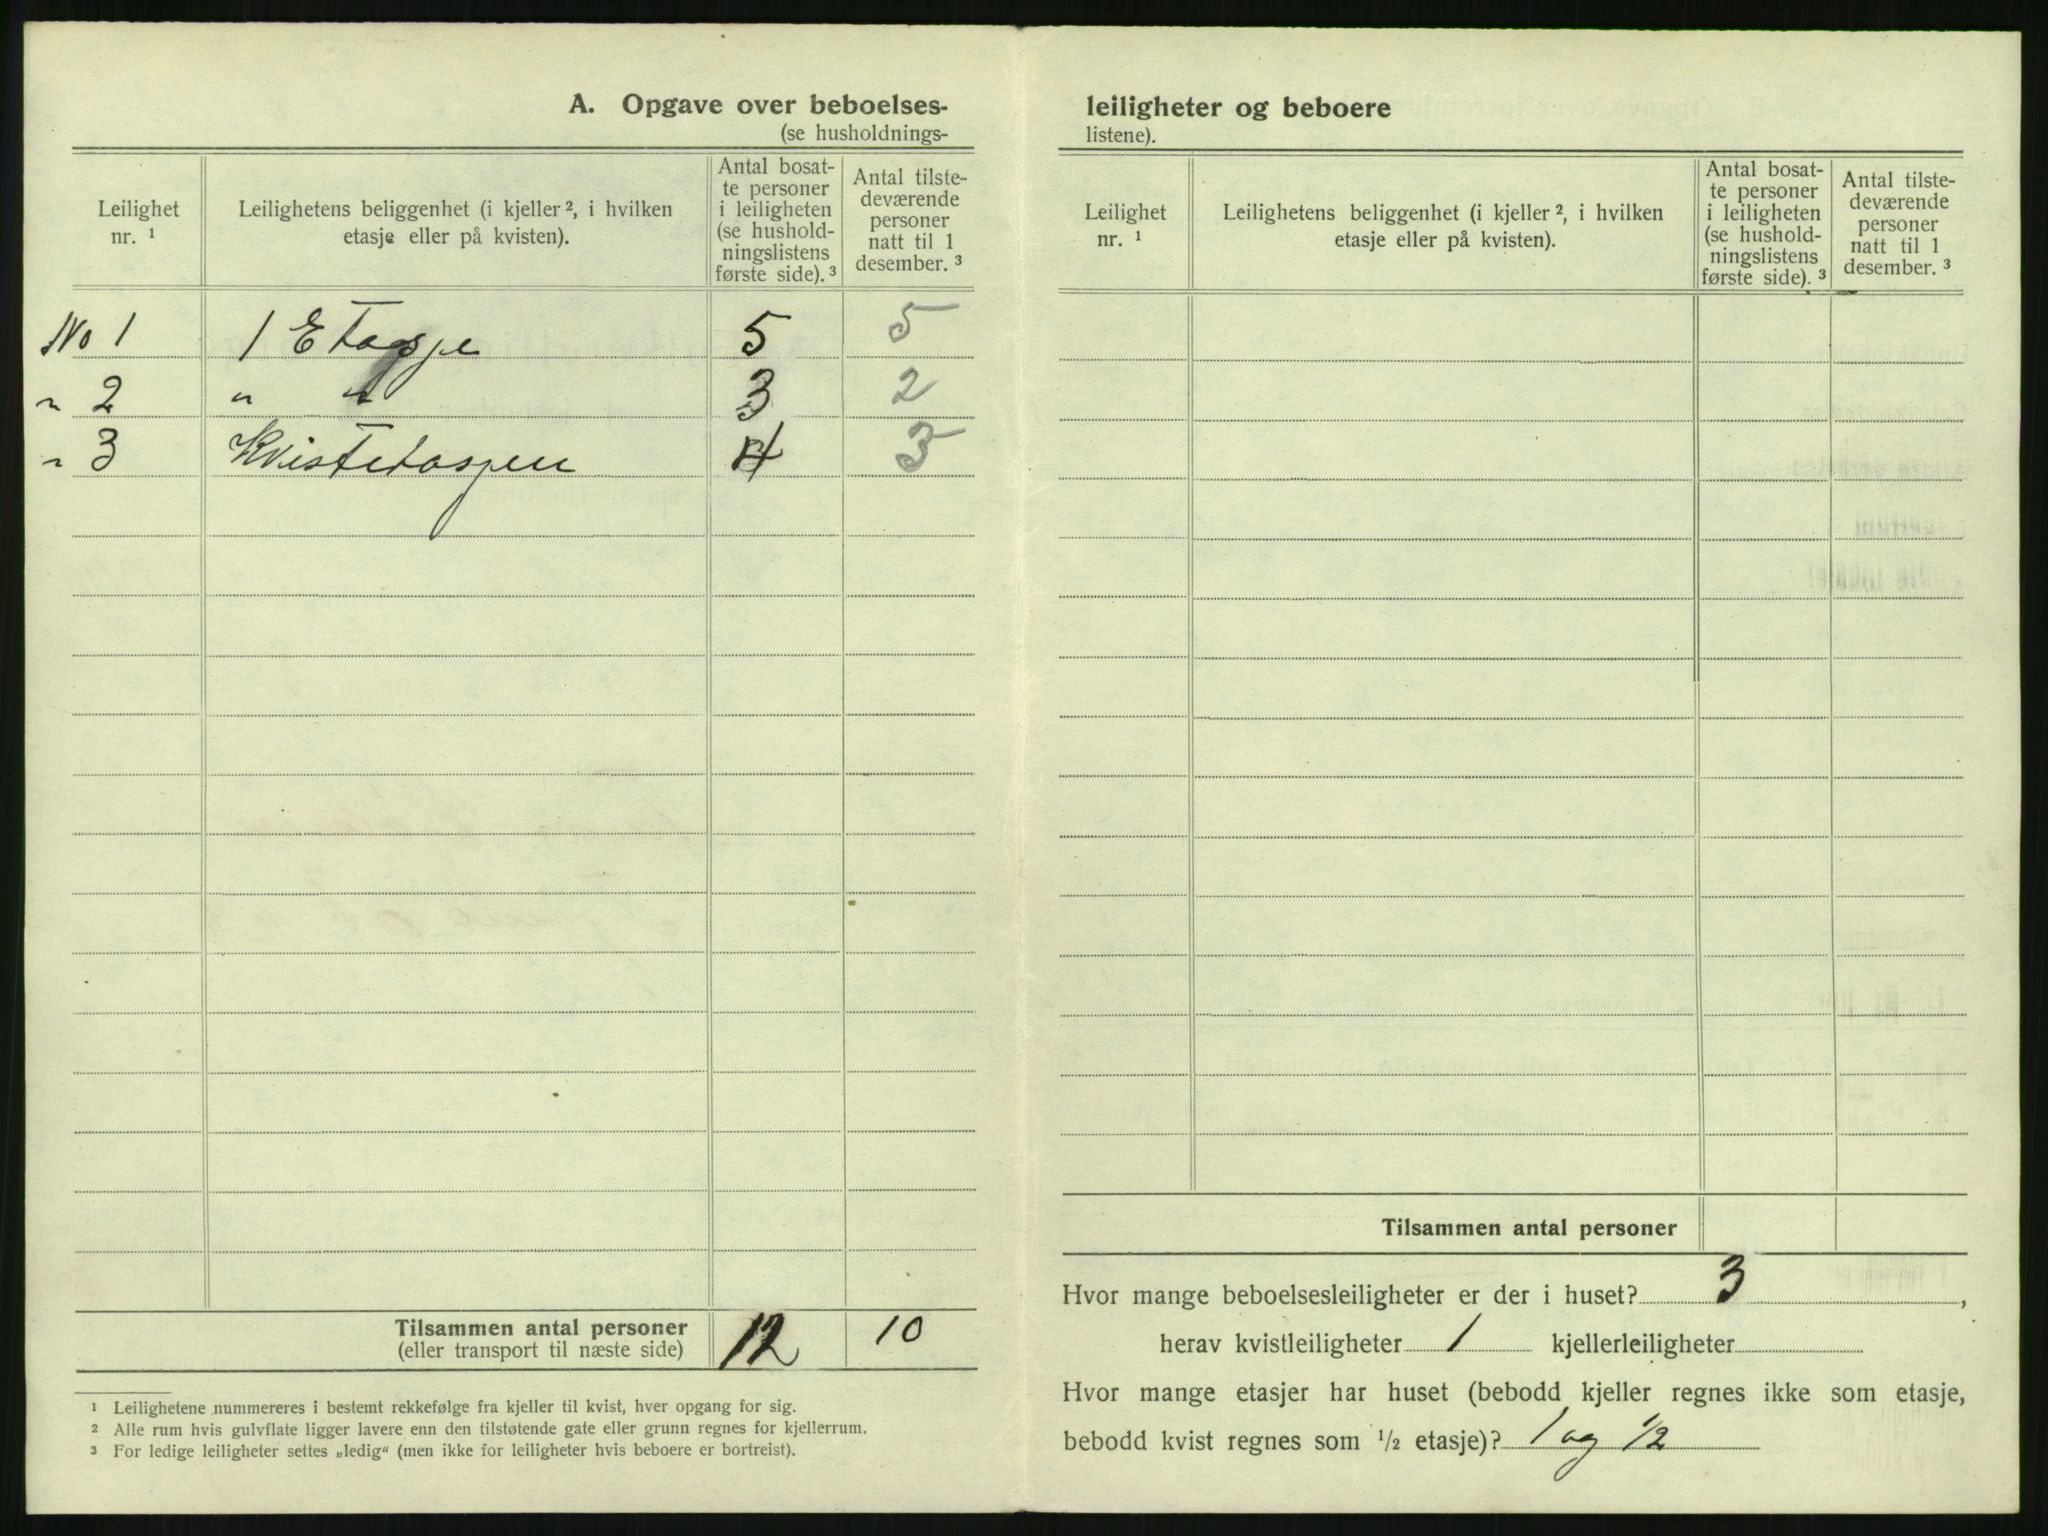 A. Opgave over beboelses-
(se husholdnings-
Leilighet nr. ¹
Leilighetens beliggenhet (i kjeller ², i hvilken etasje eller på kvisten).
Antal bosat-
te personer
i leiligheten
(se hushold-
ningslistens
første side). ³
Antal tilste-
deværende
personer
natt til 1
desember. ³
No 1 1 Etasje 5 5
" 2 " " 3 2
" 3 Kvistetasjen 4 3
Tilsammen antal personer 12 10
(eller transport til næste side)
¹ Leilighetene nummereres i bestemt rekkefølge fra kjeller til kvist, hver opgang for sig.
² Alle rum hvis gulvflate ligger lavere enn den tilstøtende gate eller grunn regnes for kjellerrum.
³ For ledige leiligheter settes „ledig“ (men ikke for leiligheter hvis beboere er bortreist).
leiligheter og beboere
listene).
Leilighet nr. ¹
Leilighetens beliggenhet (i kjeller ², i hvilken etasje eller på kvisten).
Antal bosat-
te personer
i leiligheten
(se hushold-
ningslistens
første side). ³
Antal tilste-
deværende
personer
natt til 1
desember. ³
Tilsammen antal personer
Hvor mange beboelsesleiligheter er der i huset? 3 ,
herav kvistleiligheter 1 kjellerleiligheter
Hvor mange etasjer har huset (bebodd kjeller regnes ikke som etasje,
bebodd kvist regnes som ½ etasje)? 1 og ½